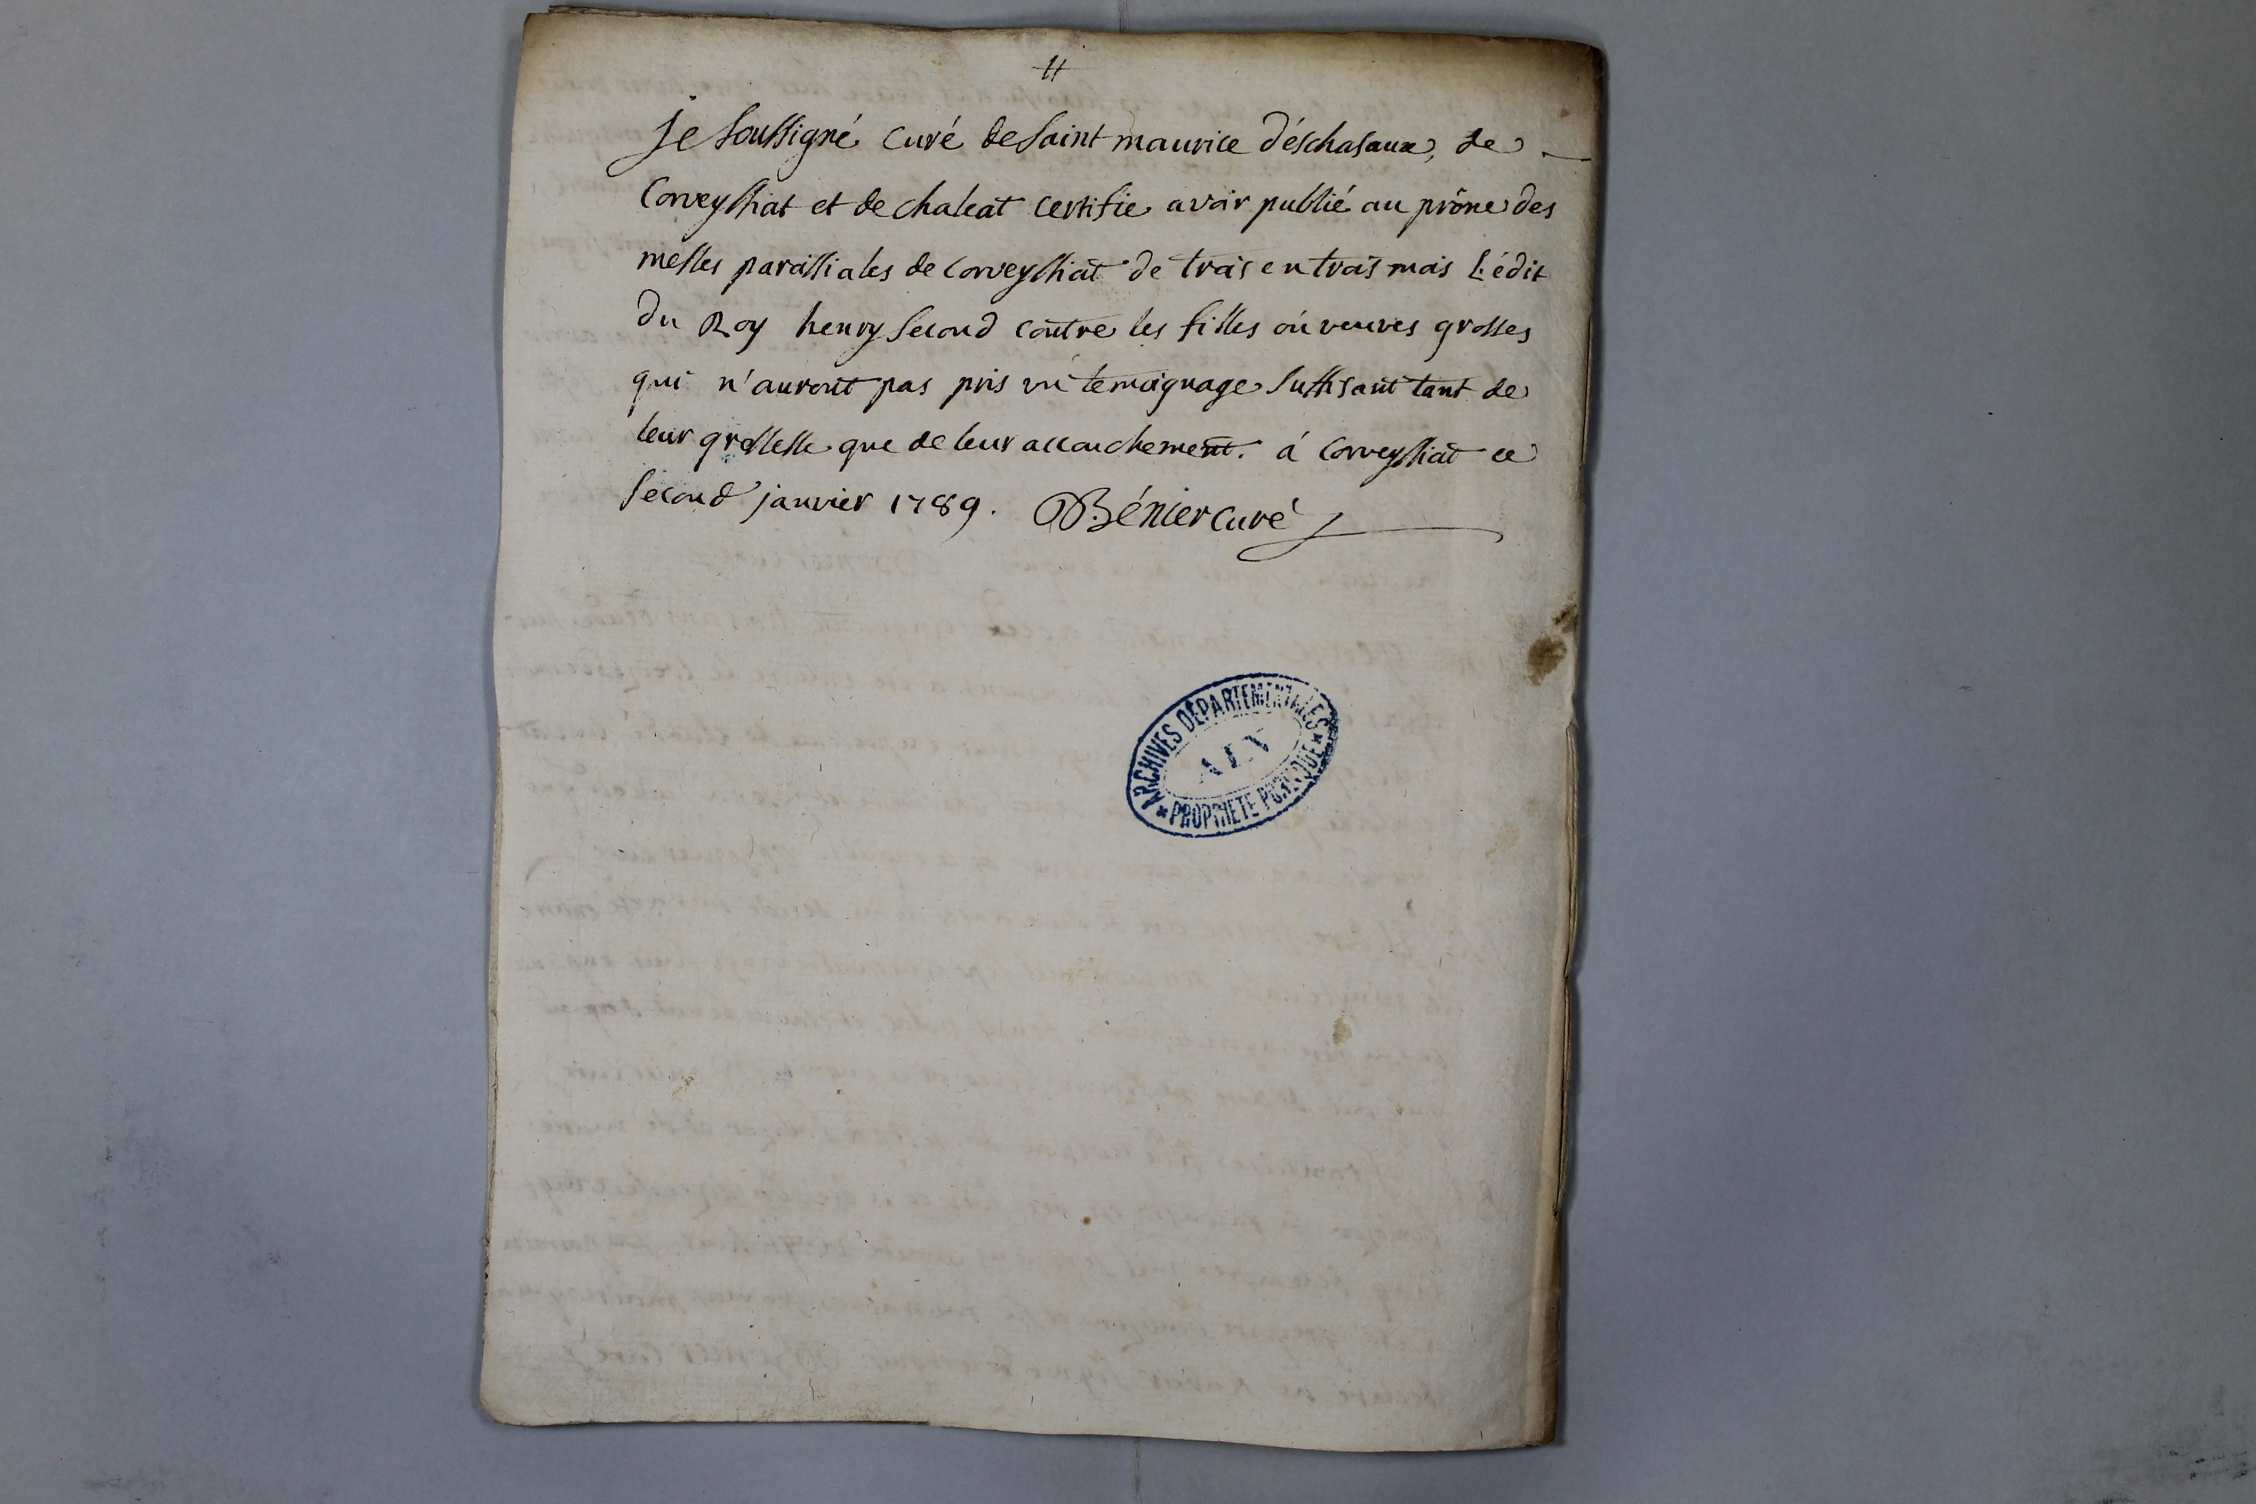 11
je soussigné curé de saint maurice d'éschasaux, de
Corveyssiat et de chaleat certifie avoir publié au prône des
messes paroissiales de Corveyssiat de trois en trois mois l'édit
du Roy henry second contre les filles ou veuves grosses
qui n'auront pas pris un temoignage suffisant tant de
leur grossesse que de leur accouchement. á Corveyssiat ce
second janvier 1789. Bénier curé
ARCHIVES DÉPARTEMENTALES
AIN
PROPRIETE PUBLIQUE